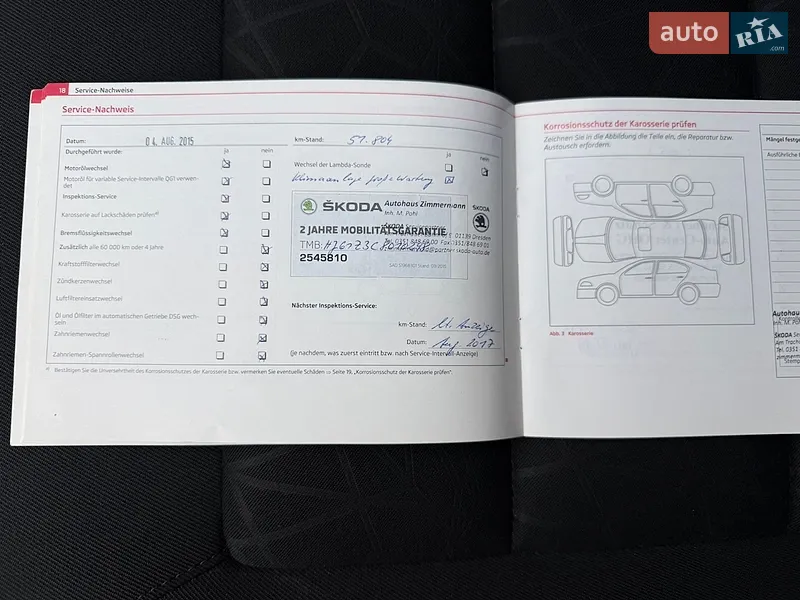 auto RIA .com
18 Service-Nachweise
Service-Nachweis
Datum: 04. AUG. 2015
km-Stand: 51.804
Durchgeführt wurde: ja nein
ja nein
Motorölwechsel
Motoröl für variable Service-Intervalle QG1 verwen-
det
Inspektions-Service
Karosserie auf Lackschäden prüfen a)
Bremsflüssigkeitswechsel
Zusätzlich alle 60 000 km oder 4 Jahre
Kraftstofffilterwechsel
Zündkerzenwechsel
Luftfiltereinsatzwechsel
Öl und Ölfilter im automatischen Getriebe DSG wech-
seln
Zahnriemenwechsel
Zahnriemen-Spannrollenwechsel
Wechsel der Lambda-Sonde
Klimaanlage große Wartung
ŠKODA
Autohaus Zimmermann
Inh. M. Pohl
ŠKODA
2 JAHRE MOBILITÄTSGARANTIE
01139 Dresden
TMB:
Tel. 0351/848 69 00 Fax 0351/848 69 01
2545810
Nächster Inspektions-Service:
km-Stand: lt. Anzeige
Datum: Aug 2017
(je nachdem, was zuerst eintritt bzw. nach Service-Intervall-Anzeige)
a) Bestätigen Sie die Unversehrtheit des Korrosionsschutzes der Karosserie bzw. vermerken Sie eventuelle Schäden ⇒ Seite 19, „Korrosionsschutz der Karosserie prüfen“.
Korrosionsschutz der Karosserie prüfen
Zeichnen Sie in die Abbildung die Teile ein, die Reparatur bzw.
Austausch erfordern.
Abb. 3 Karosserie
Mängel festge
Ausführliche
Autohaus
Inh. M. Po
ŠKODA
Am Trach
Tel. 0351
zimmerma
Stemp